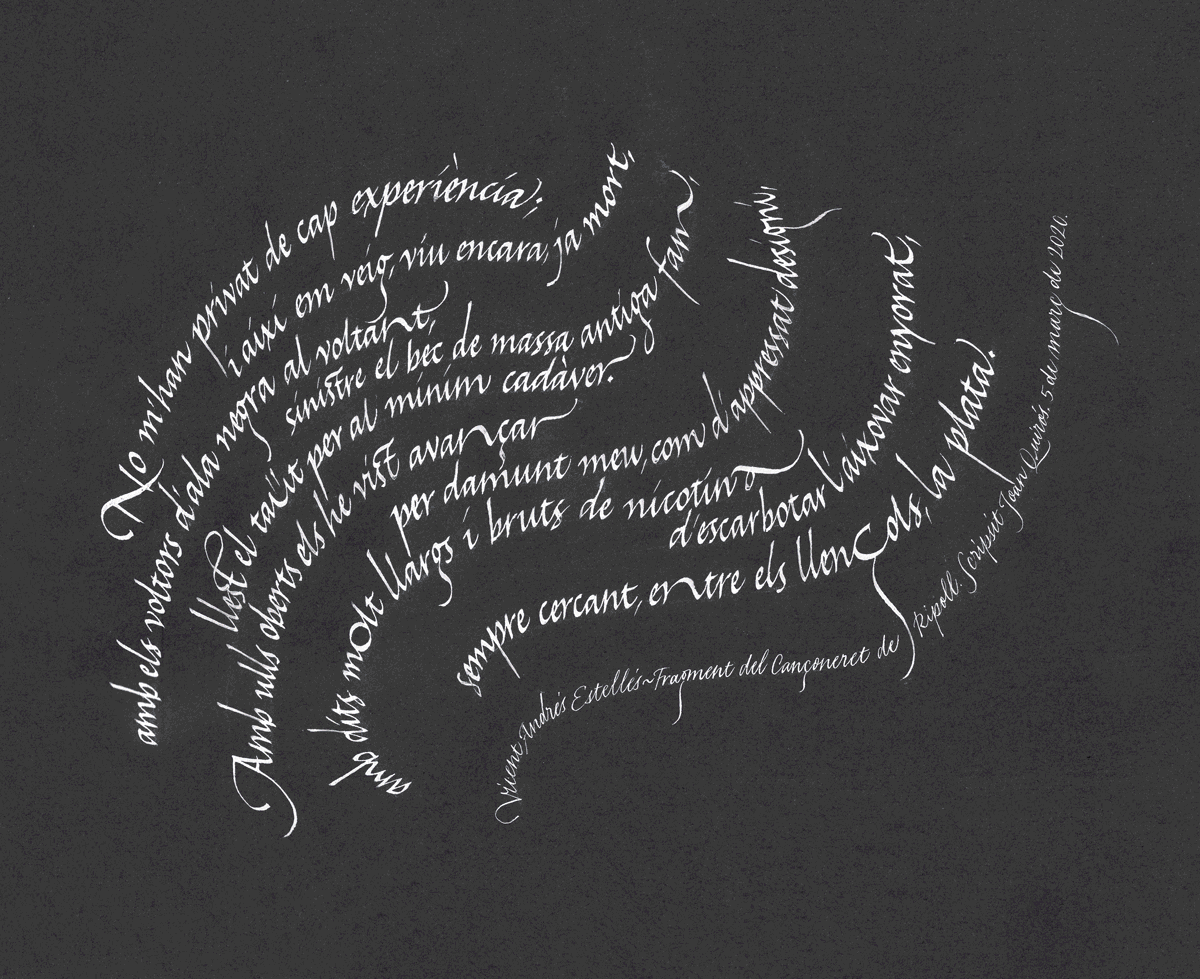 No m'han privat de cap experiència;
i així em veig, viu encara, ja mort,
amb els voltors d'ala negra al voltant,
sinistre el bec de massa antiga fam,
llest el tacit per al mínim cadàver.
Amb ulls oberts els he vist avançar
per damunt meu, com d'apressat designi,
amb dits molt llargs i bruts de nicotina
d'escarbotar l'aixovar enyorat,
sempre cercant, entre els llençols, la plata.
Vicent Andrés Estellés ~ Fragment del Cançoneret de Ripoll. Scripsit Joan Quirós. 5 de març de 2020.